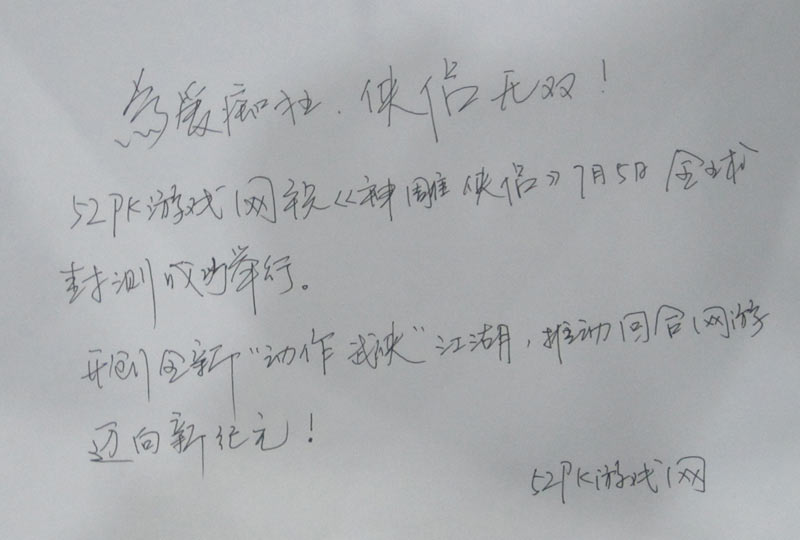 為爱痴狂.侠侣无双！
52PK游戏网祝《神雕侠侣》7月5日全球
封测成功举行。
开创全新"动作武侠"江湖，推动回合网游
迈向新纪元！
52PK游戏网